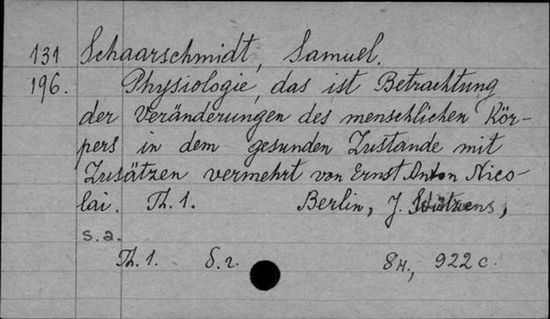 131 Schaarschmidt, Samuel.
196. Physiologie, das ist Betrachtung
der Veränderungen des menschlichen Kör-
pers in dem gesunden Zustande mit
Zusätzen vermehrt von Ernst Anton Nico-
lai. Th. 1. Berlin, J.
s.a.
Th. 1. 8н., 922 c.